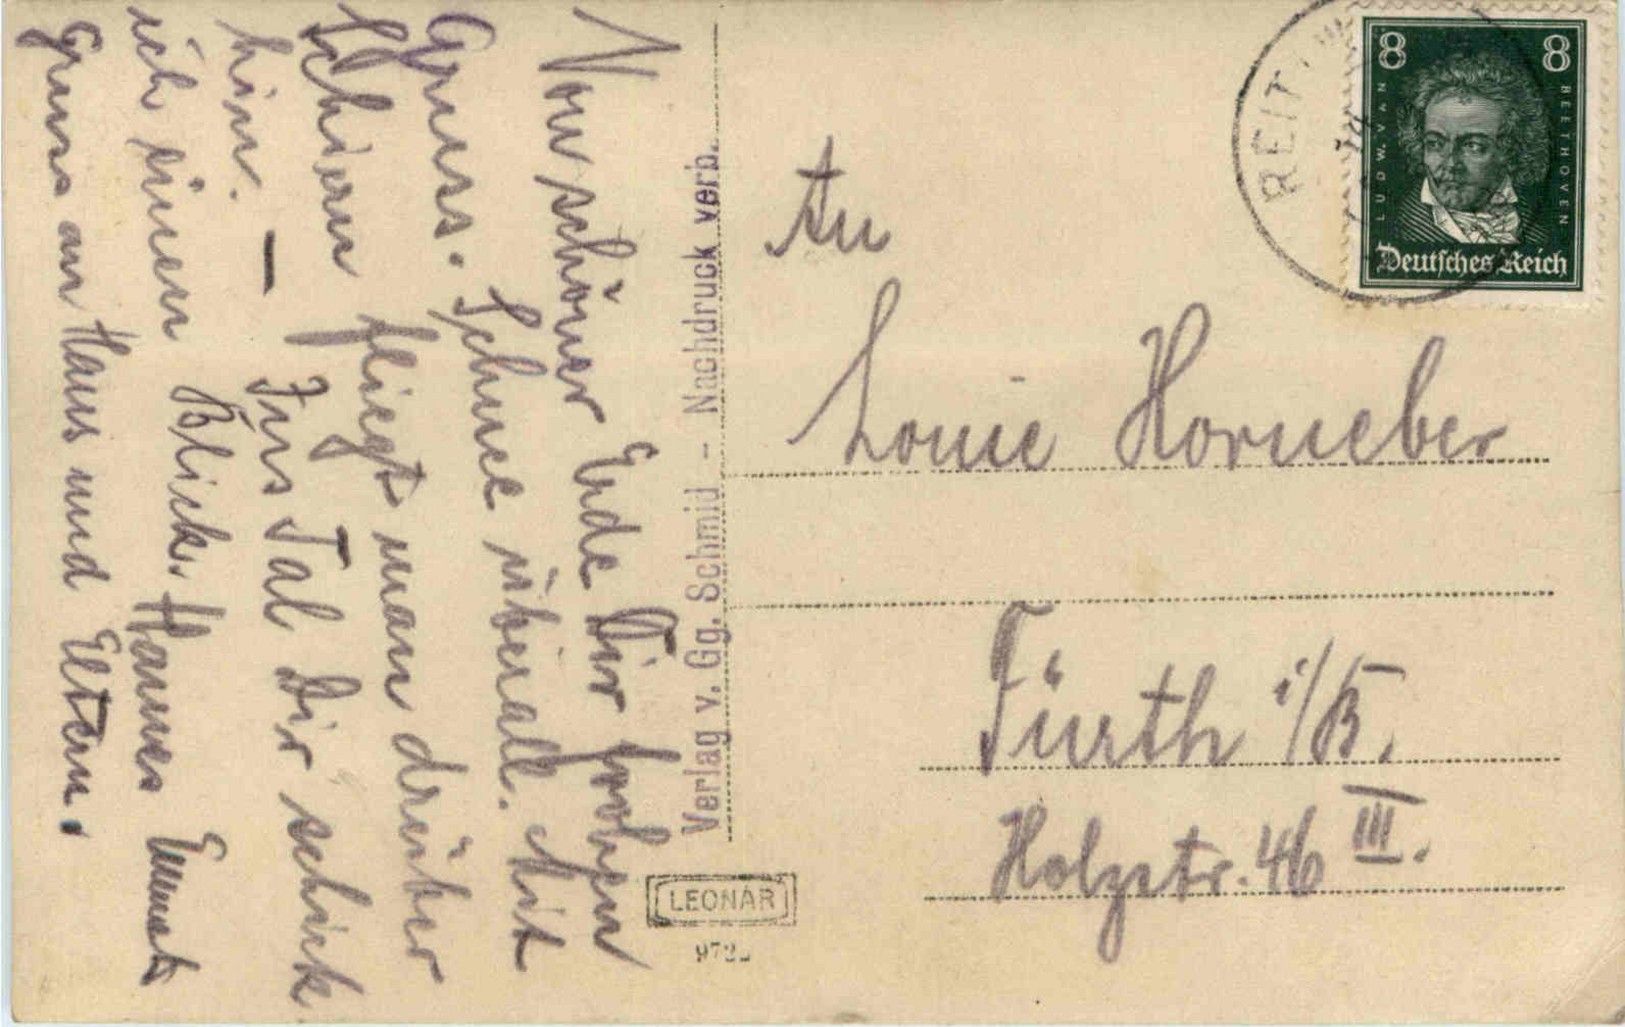 Von schöner Erde Dir frohen
Gruss. Schnee überall. Mit
Schiern fliegt man drüber
hin. — Ins Tal Dir schick
ich einen Blick. Hannes Ernst
Gruss an Hans und Eltern.
Verlag v. Gg. Schmid - Nachdruck verb.
LEONAR
REIT
8 8
LUDW. VAN
BEETHOVEN
Deutsches Reich
An
Lonie Horneber
Fürth i/B.
Holzstr. 46 III.